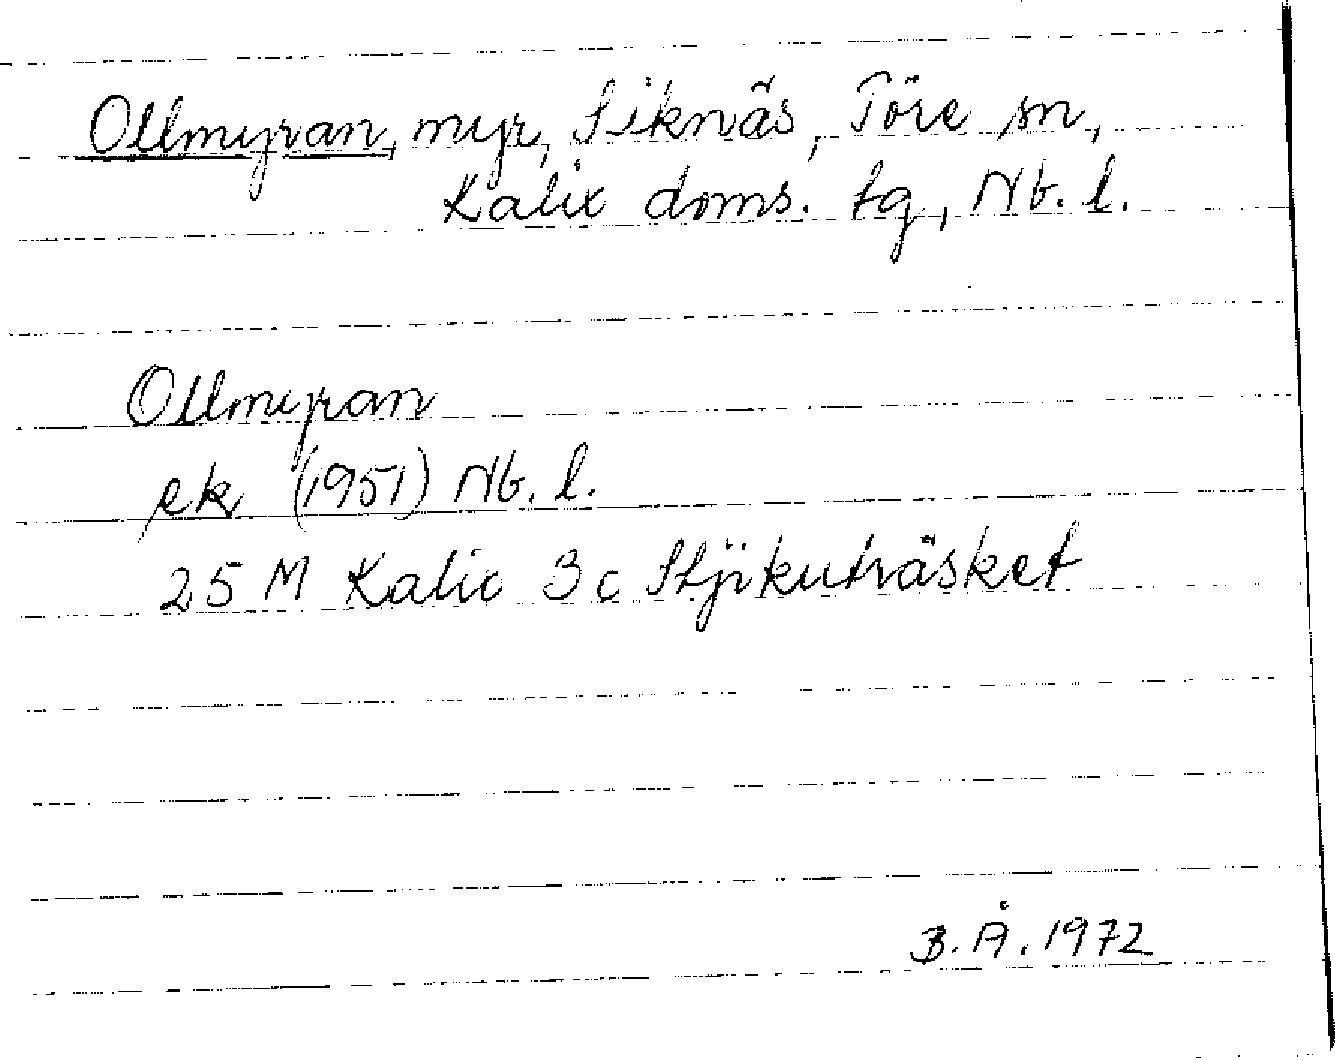 Ollmyran, myr, Siknäs, Töre sn,
Kalix doms. tg, Nb. l.
Ollmyran
ek (1951) Nb. l.
25 M Kalix 3 c Stjikuträsket
B. Å. 1972